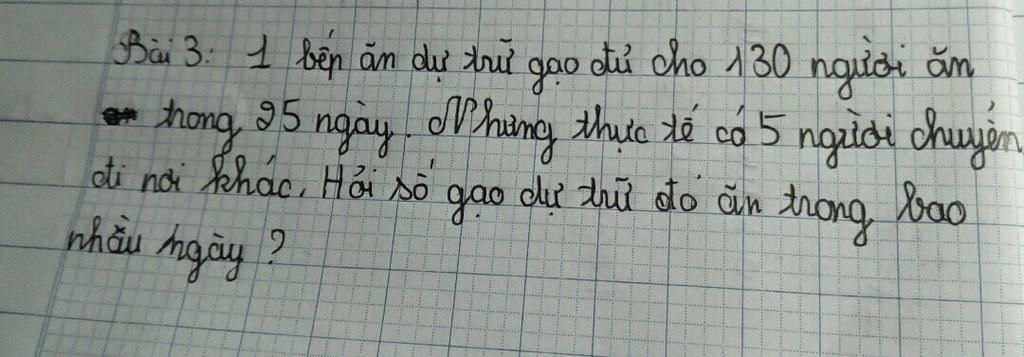 Bài 3: 1 bếp ăn dự trữ gạo đủ cho 130 người ăn
trong 25 ngày. Nhưng thực tế có 5 người chuyển
đi nơi khác. Hỏi số gạo dự trữ đó ăn trong bao
nhiêu ngày?